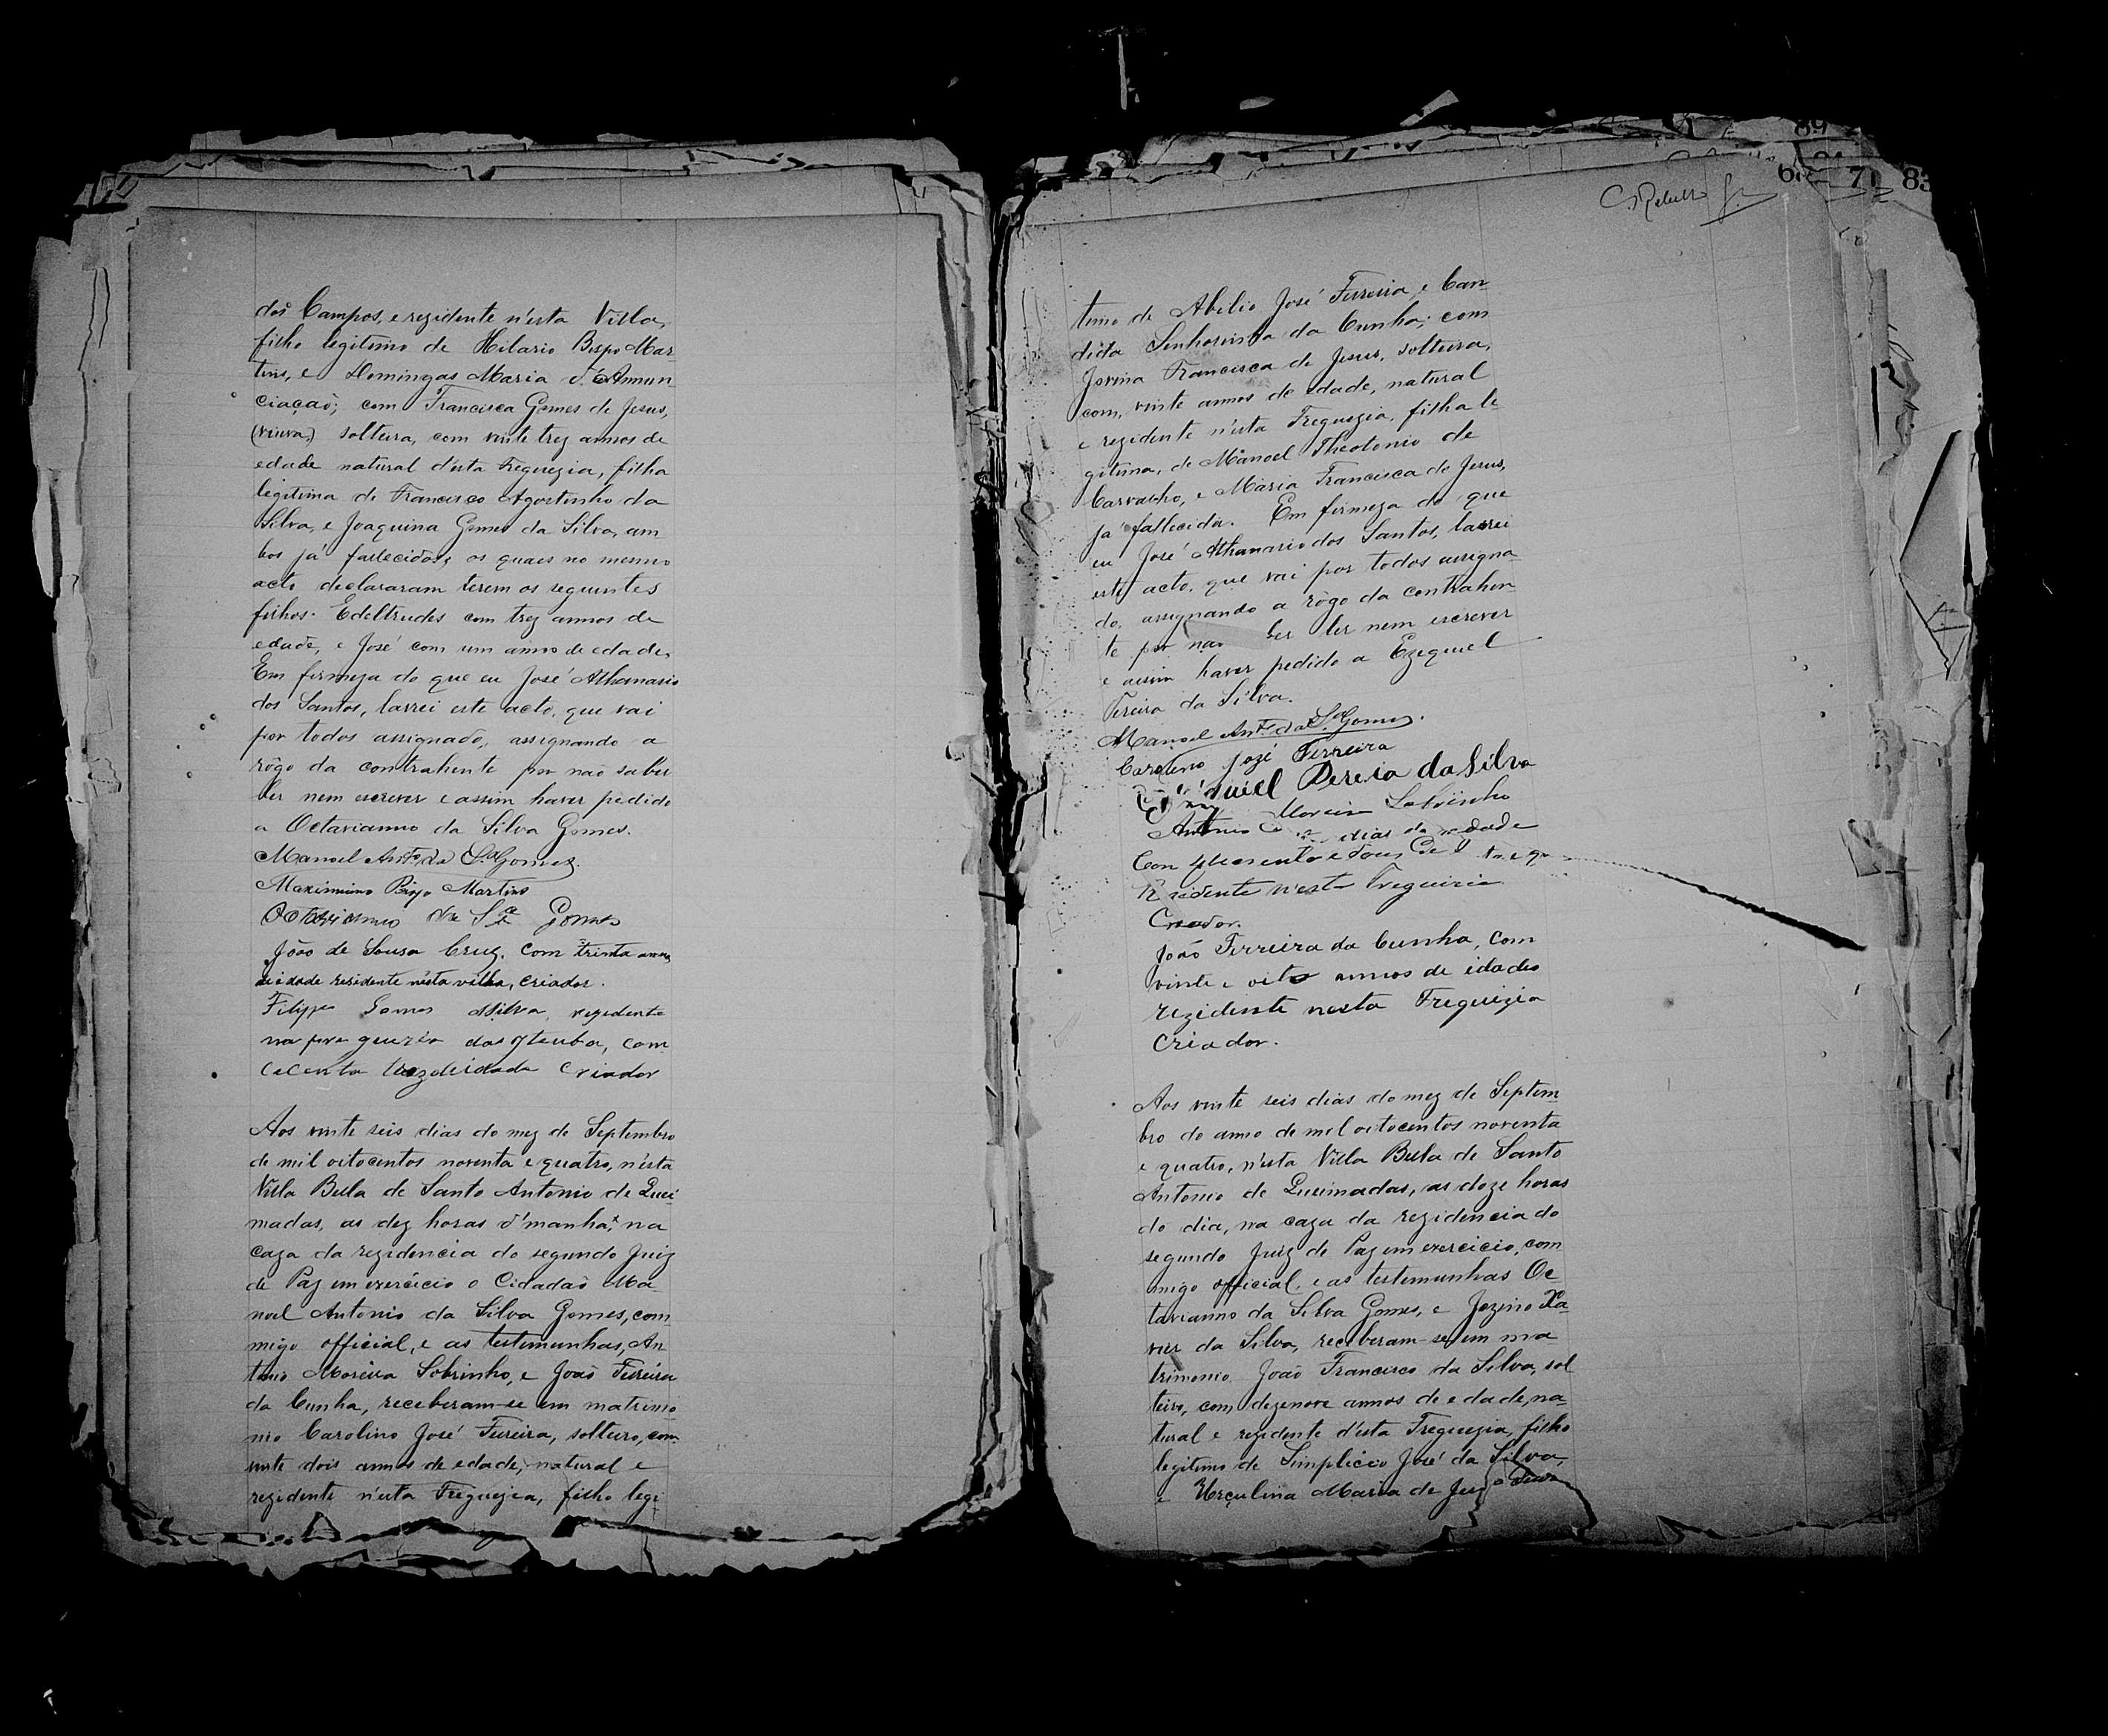 dos Campos, e rezidente n'esta Villa,
filho legitimo de Hilario Bispo Mar-
tins, e Domingas Maria d'Annun
ciação; com Francisca Gomes de Jesus,
(viuva) solteira, com vinte trez annos de
edade natural d'esta Freguezia, filha
legitima de Francisco Agostinho da
Silva, e Joaquina Gomes da Silva, am
bos já fallecidos, os quaes no mesmo
acto declararam terem os seguintes
filhos. Edeltrudes com trez annos de
edade, e José com um anno de edade.
Em firmeza do que eu José Athanasio
dos Santos, lavrei este acto, que vai
por todos assignado, assignando a
rôgo da contrahente por não saber
ler nem escrever e assim haver pedido
a Octavianno da Silva Gomes.
Manoel Anto. da Sa. Gomes.
Maximino Bispo Martins
Octavianno da Sa Gomes
João de Sousa Cruz. com trinta annos
de idade residente nésta villa, criador.
Filippe Gomes dSilva, rezidente
na freguezia das , com
cecenta trez deidade criador
Aos vinte seis dias do mez de Septembro
de mil oitocentos noventa e quatro, n'esta
Villa Bella de Santo Antonio de Quei
madas, as dez horas d'manhã, na
caza da rezidencia do segundo Juiz
de Paz em exercicio o Cidadão Ma-
noel Antonio da Silva Gomes, com
migo official, e as testemunhas, An
tonio Moreira Sobrinho, e João Ferreira
da Cunha, receberam-se em matrimo
nio Carolino José Ferreira, solteiro, com
vinte dois annos de edade, natural e
rezidente n'esta Freguezia, filho legi-
68 71 83
timo de Abilio José Ferreira, e Can-
dida Senhorinha da Cunha; com
Jovina Francisca de Jesus, solteira,
com, vinte annos de edade, natural
e rezidente n'esta Freguezia, filha le-
gitima, de Manoel Theotonio de
Carvalho, e Maria Francisca de Jesus,
já fallecida. Em firmeza do que
eu José Athanasio dos Santos, lavrei
este acto, que vai por todos assigna-
do, assignando a rôgo da contrahen-
te por não ler nem escrever
e assim haver pedido a Ezequiel
Pereira da Silva.
Manoel Anto. da Sa. Gomes.
Carolino José Ferreira
Ezequiel Pereia da Silva
Antonio Moreira Sobrinho
Com quarenta e dous de idade
Residente n'esta Freguizia
Creador.
João Ferreira da Cunha, com
vinte e oito annos de idade
rezidente nesta Freguizia
Criador.
Aos vinte seis dias do mez de Septem-
bro do anno de mil oitocentos noventa
e quatro, n'esta Villa Bella de Santo
Antonio de Queimadas, as doze horas
do dia, na caza da rezidencia do
segundo Juiz de Paz em exercicio, com
migo official, e as testemunhas Oc-
tavianno da Silva Gomes, e Jozino Xa-
vier da Silva, receberam-se em ma
trimonio João Francisco da Silva, sol
teiro, com dezenove annos de edade, na-
tural e rezidente d'esta Freguezia, filho
legitimo de Simplicio José da Silva,
e Herculina Maria de